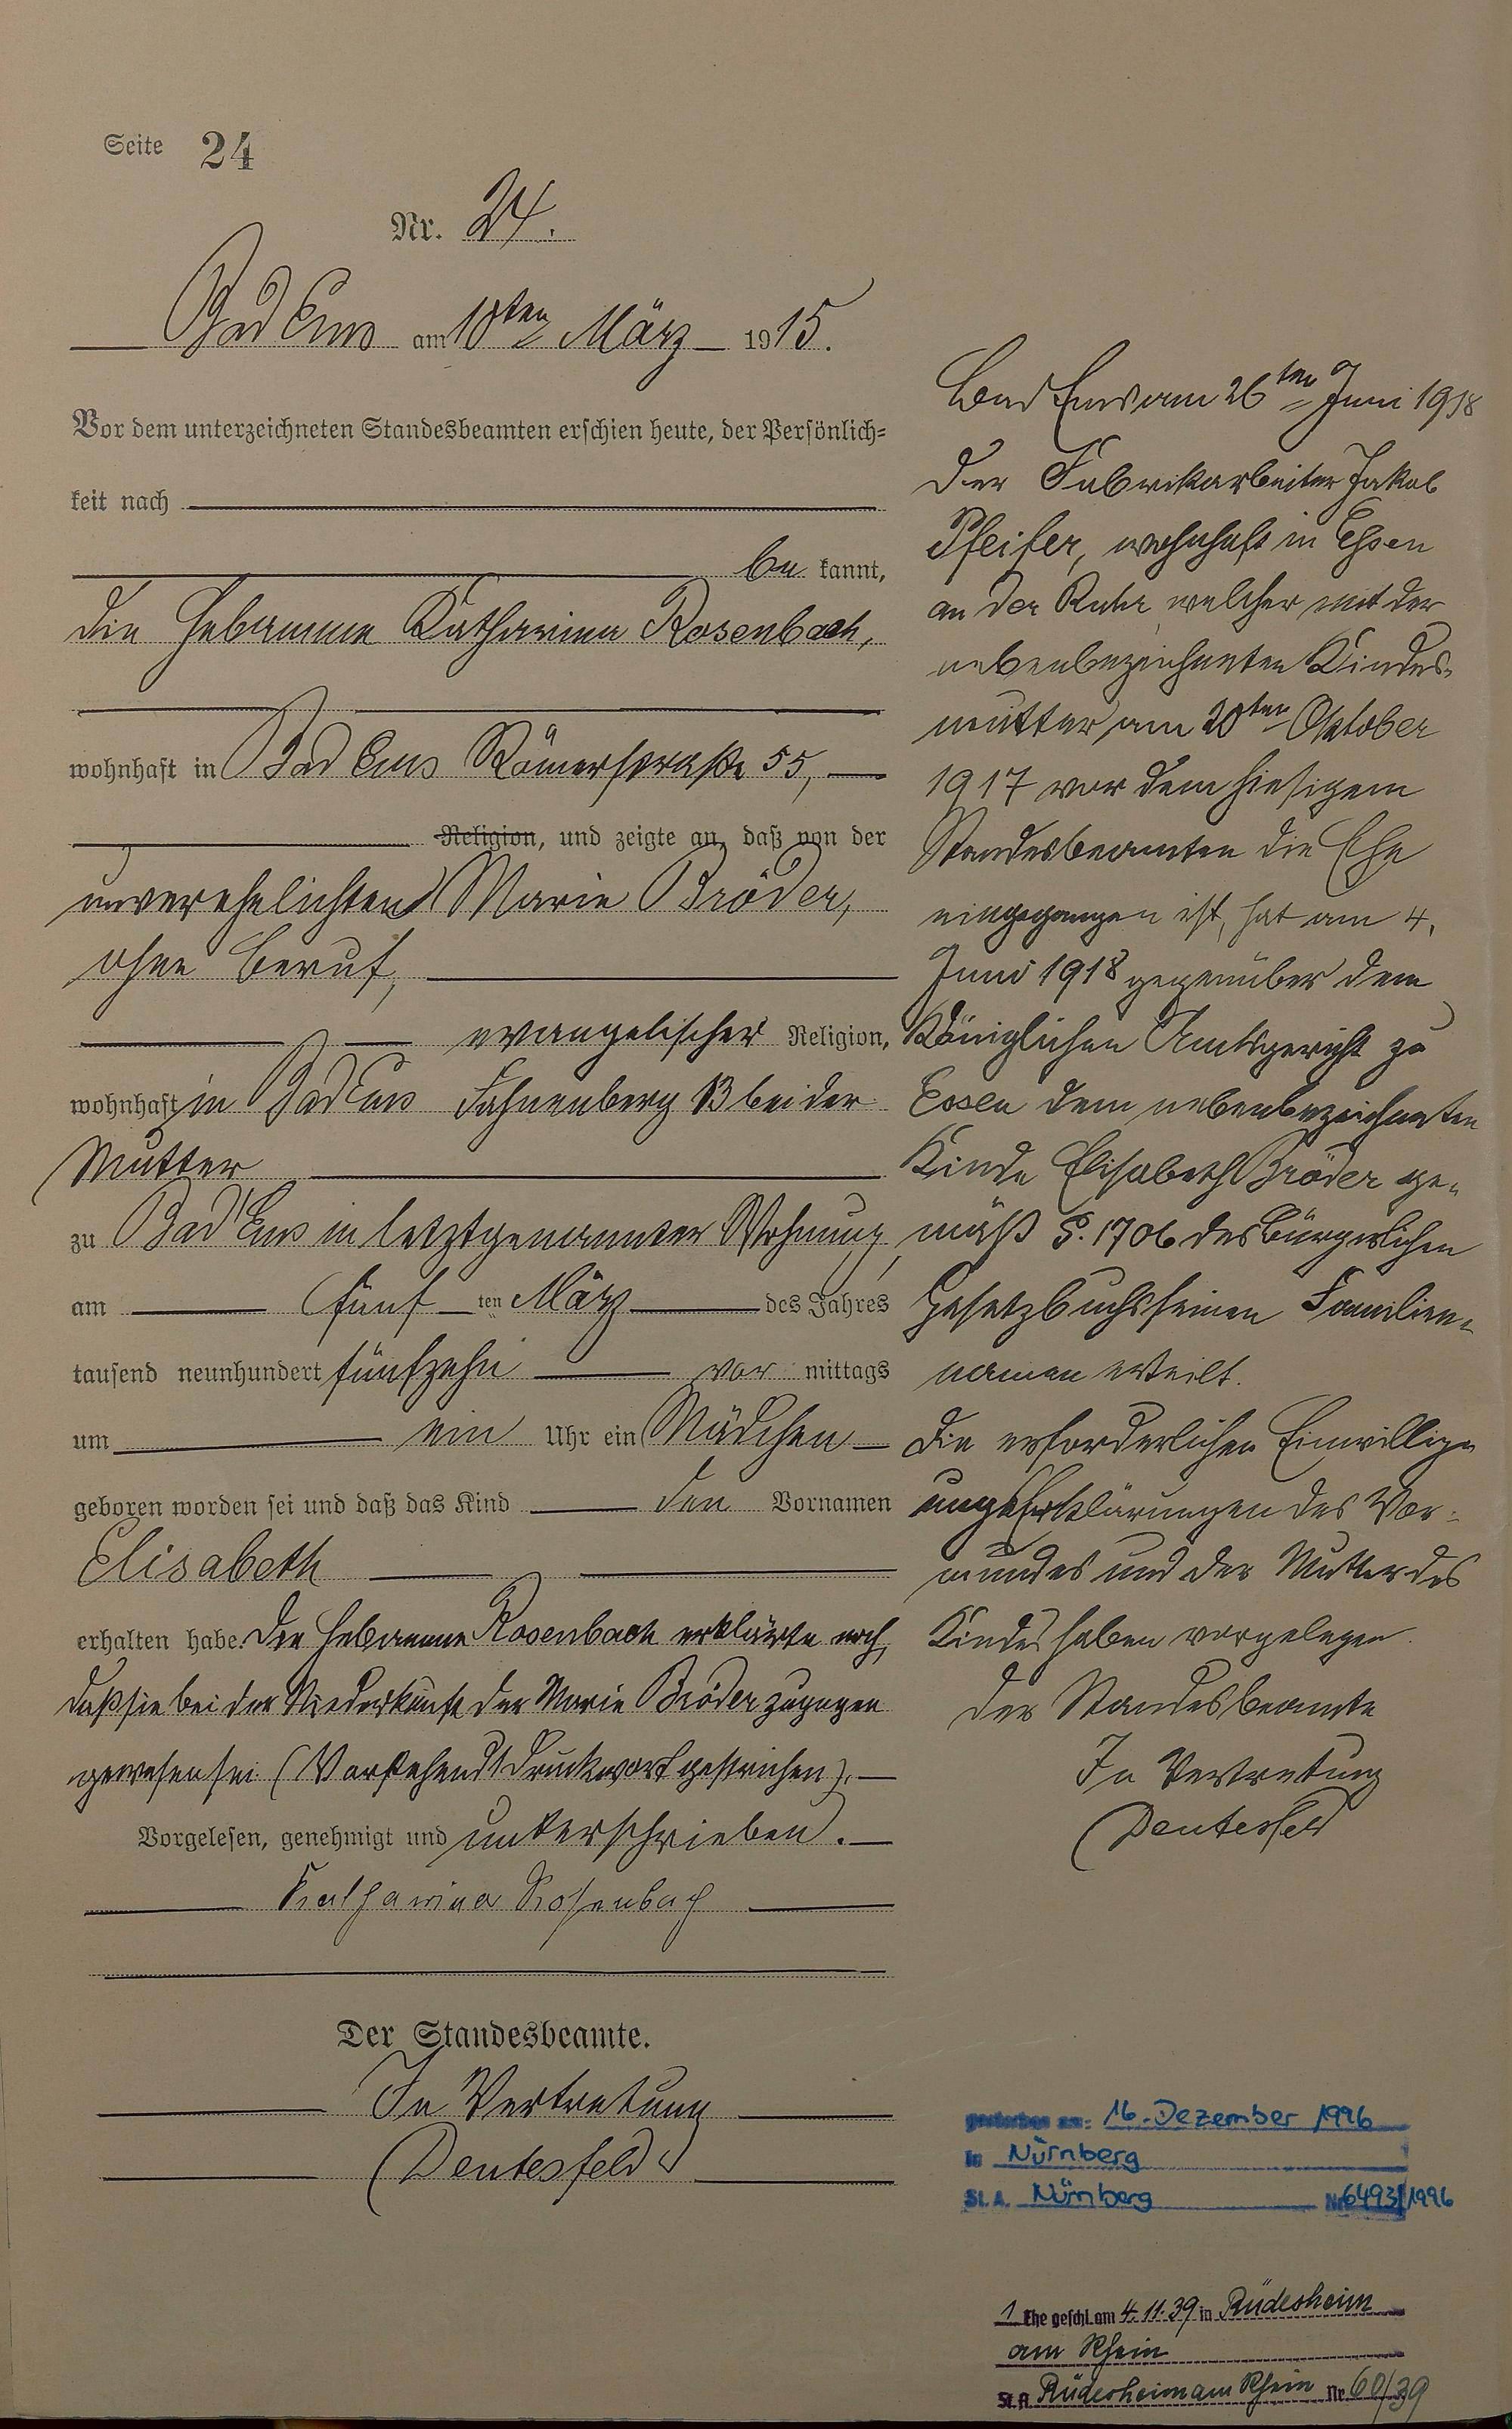 Seite 24
Nr. 24.
Bad Ems am 10ten März 1915.
Vor dem unterzeichneten Standesbeamten erschien heute, der Persönlich=
keit nach
be kannt,
die Hebamme Katharina Rosenbach,
wohnhaft in Bad Ems Römerstraße 55,
Religion, und zeigte an, daß von der
unverehelichten Marie Bröder,
ohne Beruf,
evangelischer Religion,
wohnhaft in Bad Ems Fahnenberg 13 bei der
Mutter
zu Bad Ems in letztgenannter Wohnung,
am fünf ten März des Jahres
tausend neunhundert fünfzehn vor mittags
um ein Uhr ein Mädchen
geboren worden sei und daß das Kind den Vornamen
Elisabeth
erhalten habe. Die Hebamme Rosenbach erklärte noch,
daß sie bei der Niederkunft der Marie Bröder zugegen
gewesen sei. (Vorstehend 1 Druckwort gestrichen).
Vorgelesen, genehmigt und unterschrieben.
Katharina Rosenbach
Der Standesbeamte.
In Vertretung
Deutesfeld
Bad Ems am 26ten Juni 1918
Der Fabrikarbeiter Jakob
Pfeifer, wohnhaft in Essen
an der Ruhr, welcher mit der
nebenbezeichneten Kindes-
mutter am 20ten Oktober
1917 vor dem hiesigem
Standesbeamten die Ehe
eingegangen ist, hat am 4.
Juni 1918 gegenüber dem
Königlichen Amtsgericht zu
Essen dem nebenbezeichneten
Kinde Elisabeth Bröder ge-
mäß §. 1706 des Bürgerlichen
Gesetzbuchs seinen Familien-
namen erteilt.
Die erforderlichen Einwillig-
ungs Erklärungen des Vor-
mundes und der Mutter des
Kindes haben vorgelegen.
Der Standesbeamte
In Vertretung
Deutesfeld
gestorben am: 16. Dezember 1996
in Nürnberg
St. A. Nürnberg Nr. 6493/1996
1. Ehe geschl. am 4.11.39 in Rüdesheim
am Rhein
St. A. Rüdesheim am Rhein Nr. 60/39